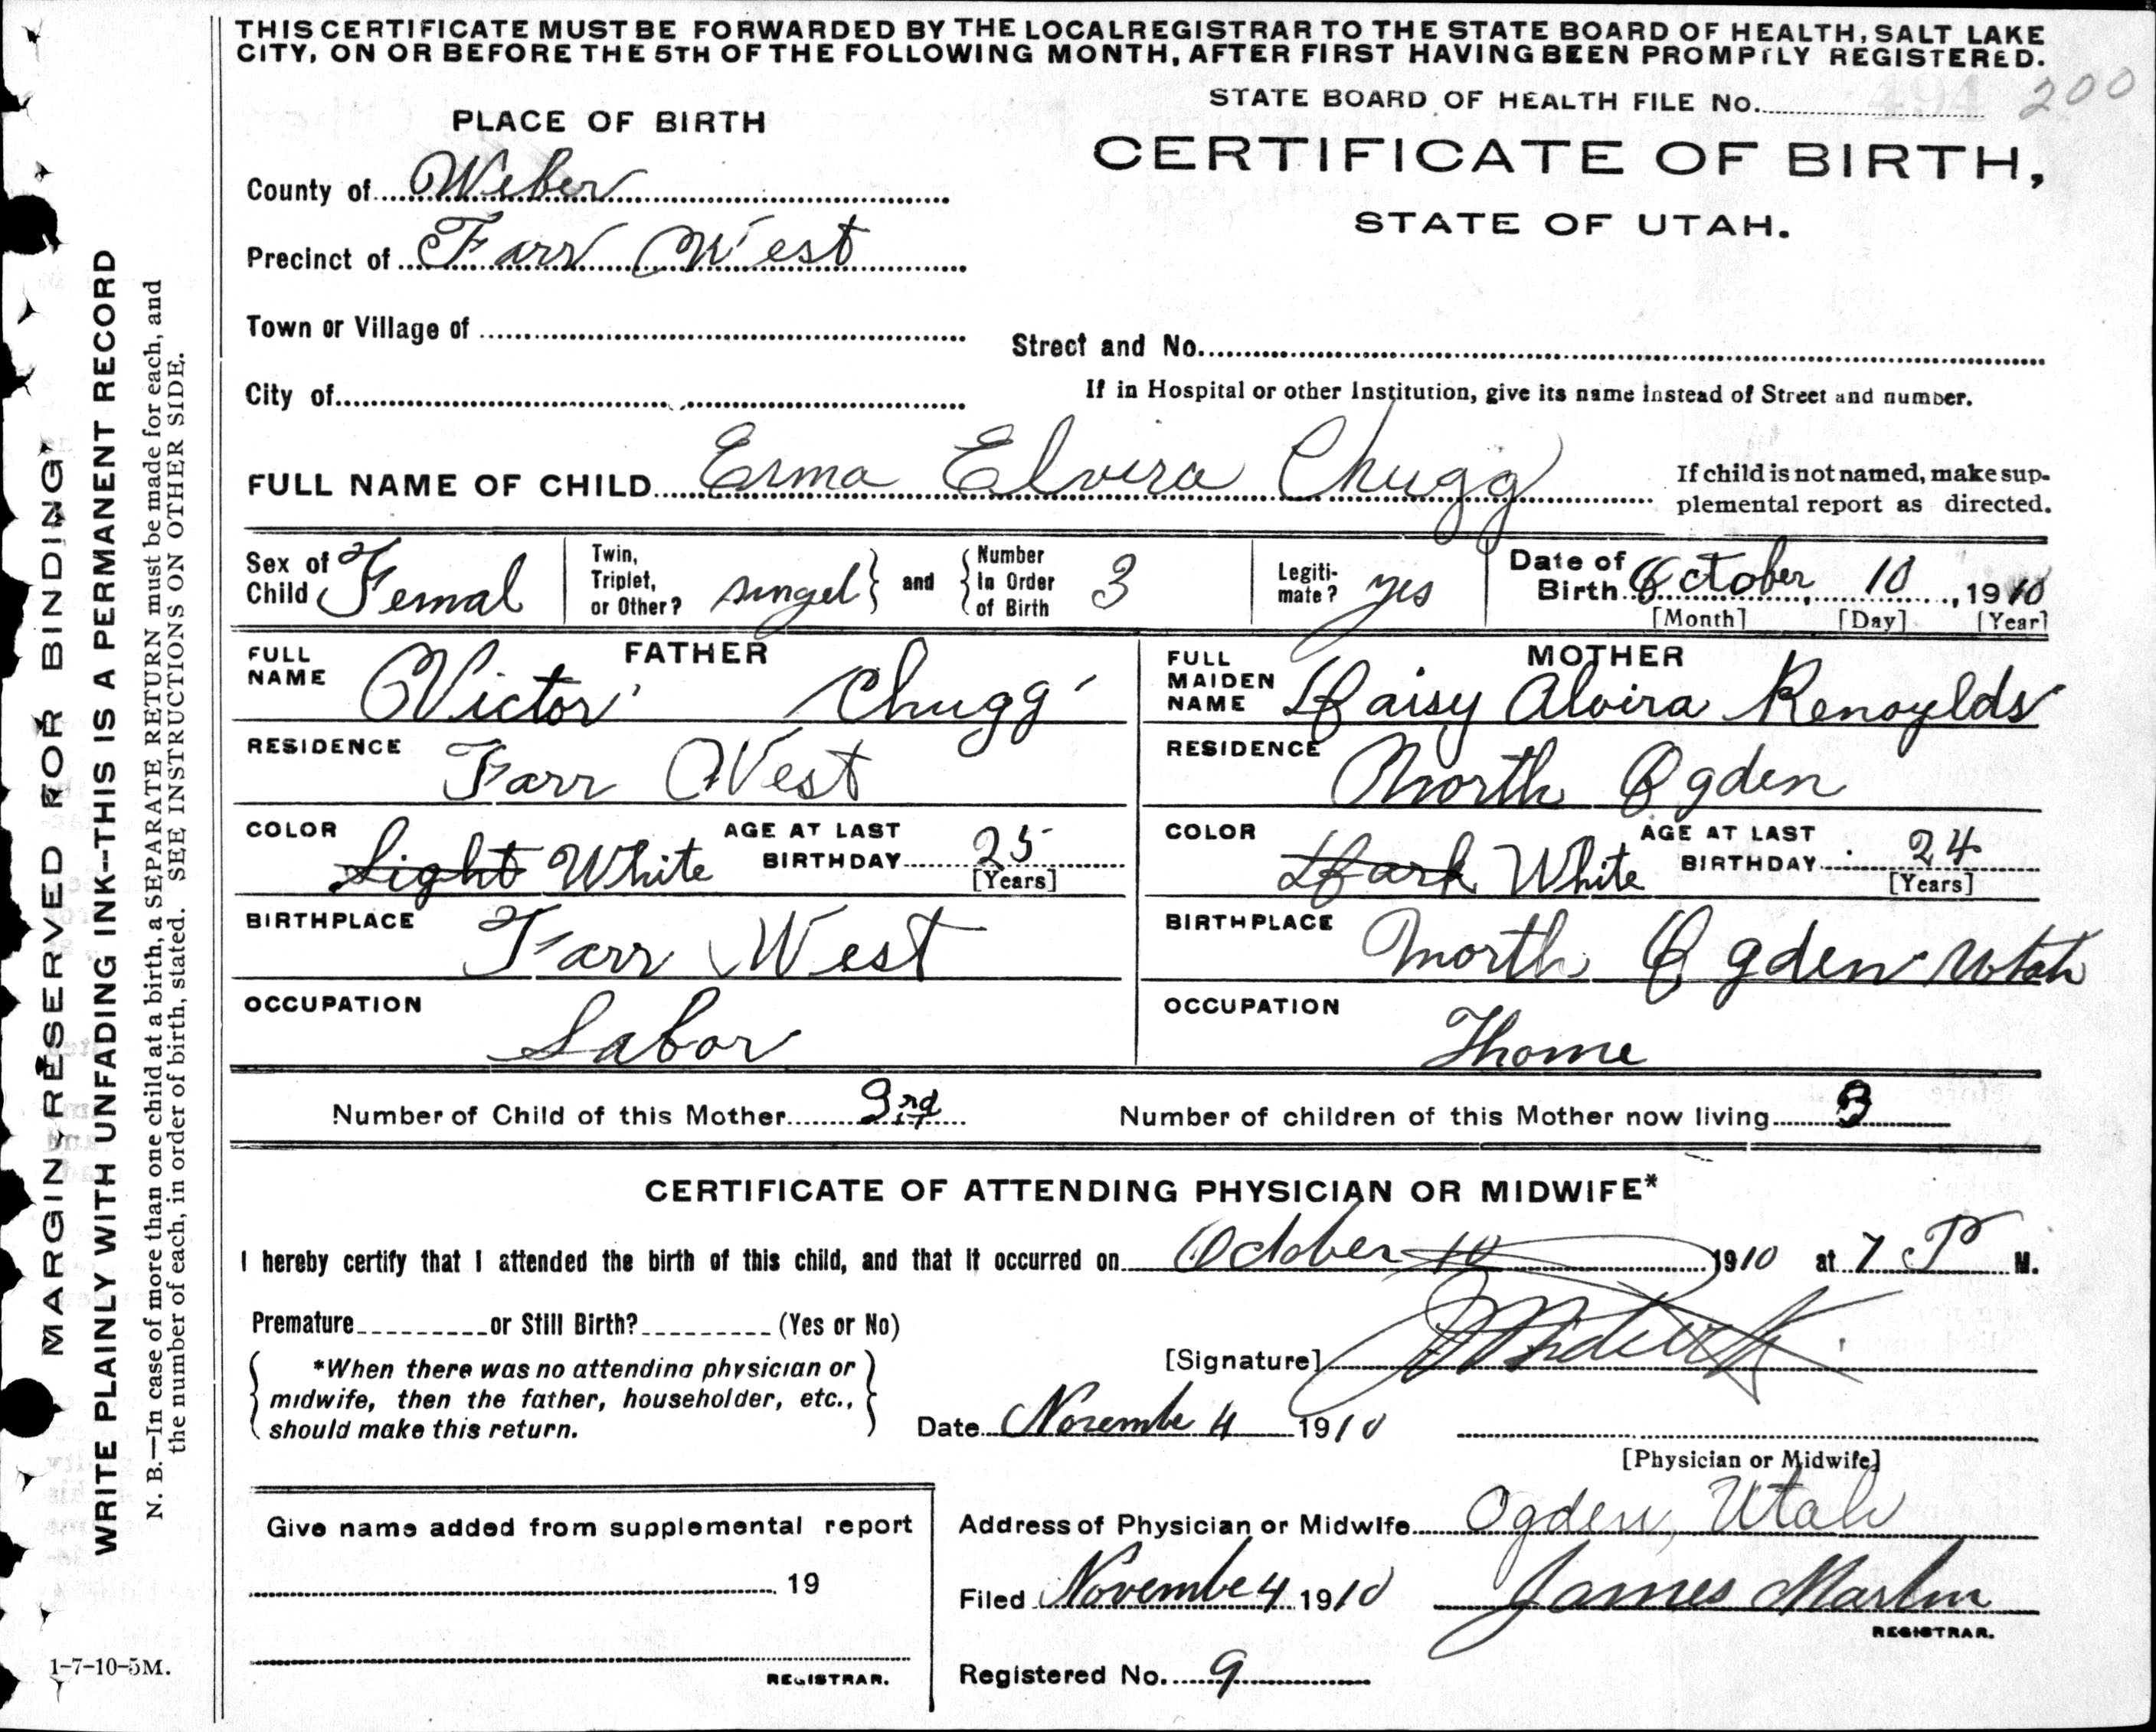 THIS CERTIFICATE MUST BE FORWARDED BY THE LOCAL REGISTRAR TO THE STATE BOARD OF HEALTH, SALT LAKE
CITY, ON OR BEFORE THE 5TH OF THE FOLLOWING MONTH, AFTER FIRST HAVING BEEN PROMPTLY REGISTERED.
STATE BOARD OF HEALTH FILE No. 494 200
PLACE OF BIRTH
CERTIFICATE OF BIRTH,
STATE OF UTAH.
County of Weber
Precinct of Farr West
Town or Village of
Street and No.
City of
If in Hospital or other Institution, give its name instead of Street and number.
FULL NAME OF CHILD Erma Elvira Chugg
If child is not named, make sup-
plemental report as directed.
Sex of Child Femal
Twin, Triplet, or Other? singel } and { Number in Order of Birth 3
Legiti-mate? yes
Date of Birth October 10, 1910
[Month] [Day] [Year]
FATHER
FULL NAME Victor Chugg
RESIDENCE Farr West
COLOR Light White AGE AT LAST BIRTHDAY 25
[Years]
BIRTHPLACE Farr West
OCCUPATION Labor
MOTHER
FULL MAIDEN NAME Daisy Alvira Renoylds
RESIDENCE North Ogden
COLOR Dark White AGE AT LAST BIRTHDAY 24
[Years]
BIRTHPLACE North Ogden Utah
OCCUPATION Home
Number of Child of this Mother 3rd Number of children of this Mother now living 3
CERTIFICATE OF ATTENDING PHYSICIAN OR MIDWIFE*
I hereby certify that I attended the birth of this child, and that it occurred on October 10 1910 at 7 P M.
Premature or Still Birth? (Yes or No)
*When there was no attending physician or
midwife, then the father, householder, etc.,
should make this return.
[Signature]
Date Novembe 4 1910
[Physician or Midwife]
Give name added from supplemental report
19
REGISTRAR.
Address of Physician or Midwife Ogden, Utah
Filed Novembe 4 1910 James Martin
REGISTRAR.
Registered No. 9
1-7-10-5M.
MARGIN RESERVED FOR BINDING
WRITE PLAINLY WITH UNFADING INK--THIS IS A PERMANENT RECORD
N. B.—In case of more than one child at a birth, a SEPARATE RETURN must be made for each, and
the number of each, in order of birth, stated. SEE INSTRUCTIONS ON OTHER SIDE.